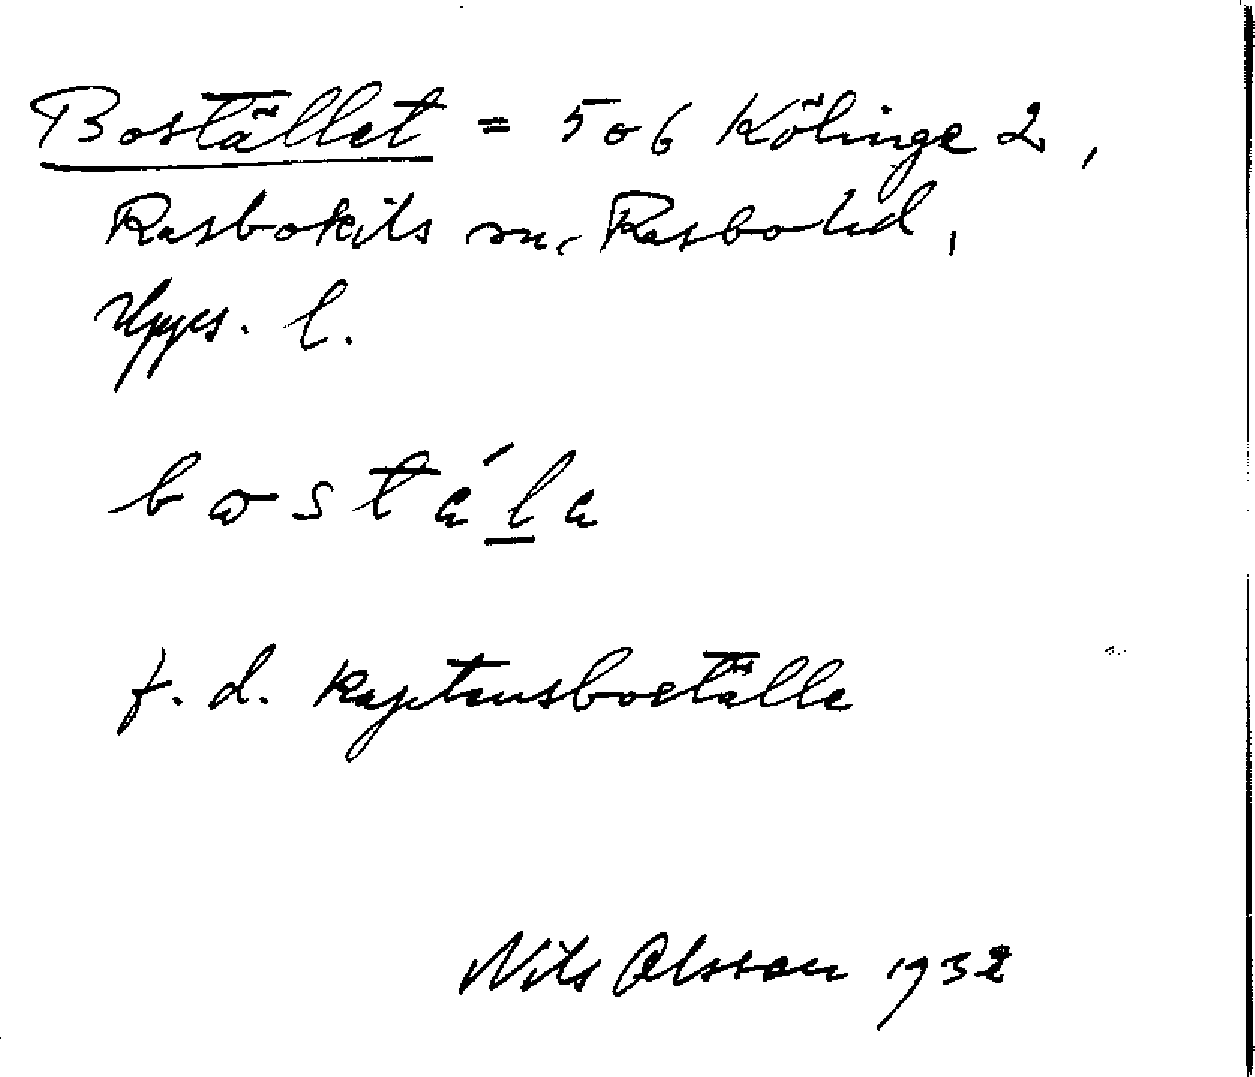 Bostället = 506 Kölinge 2,
Rasbokils sn, Rasbo hd,
Upps. l.
f. d. kaptensboställe
Nils Olsson 1932